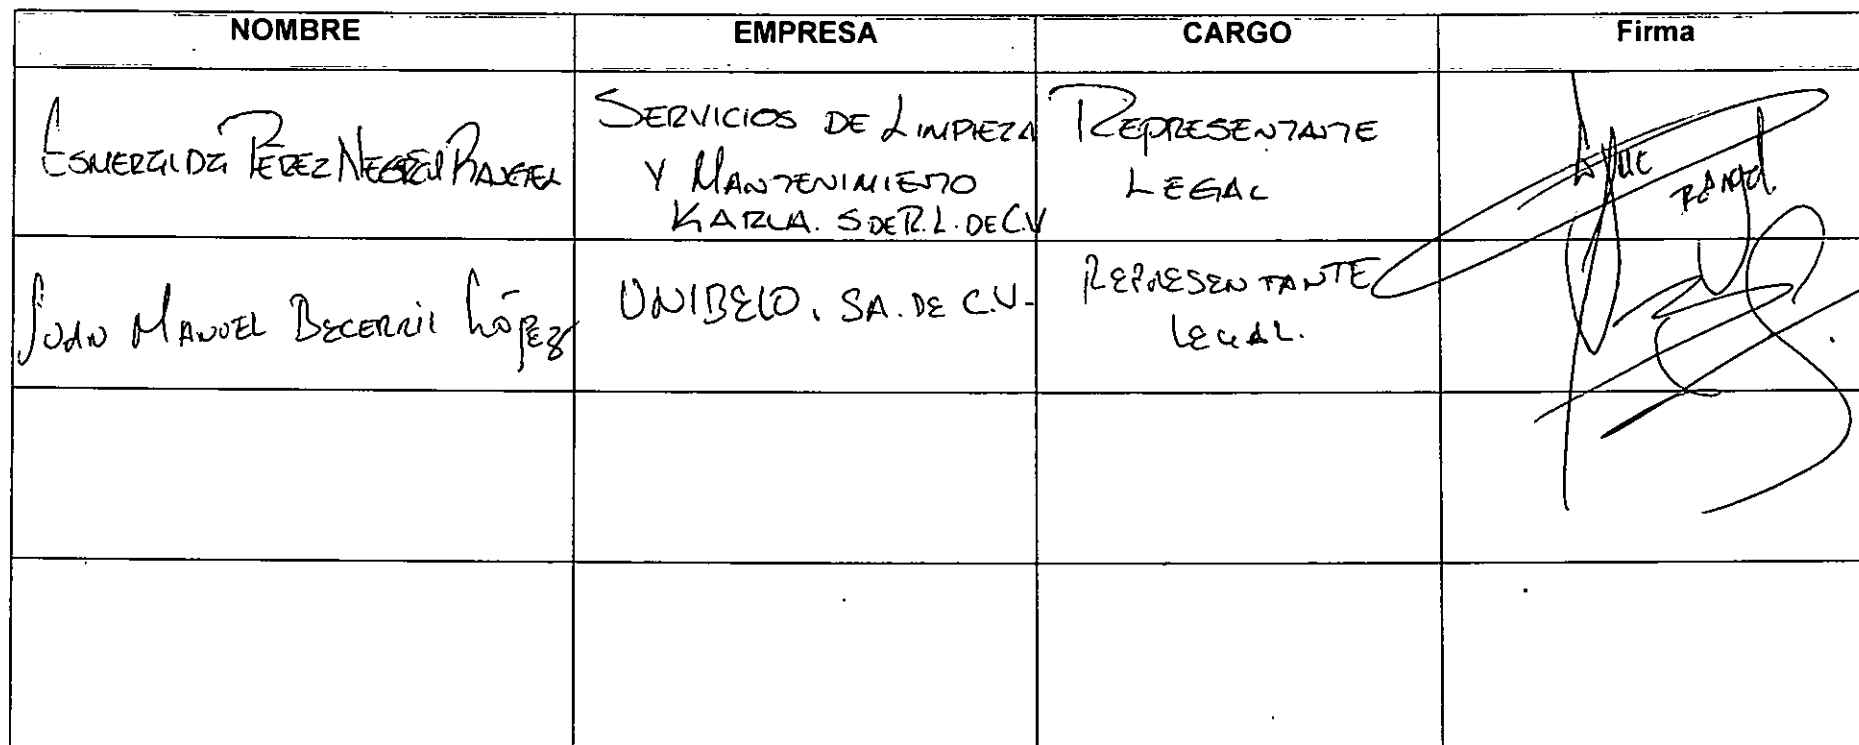 NOMBRE EMPRESA CARGO Firma
ESMERALDA PÉREZ NEGRÓN RANGEL
SERVICIOS DE LIMPIEZA
Y MANTENIMIENTO
KARLA. S DE R.L. DE C.V
REPRESENTANTE
LEGAL
RANGEL
JUAN MANUEL BECERRIL LÓPEZ
UNIBELO. SA. DE C.V.
REPRESENTANTE
LEGAL.